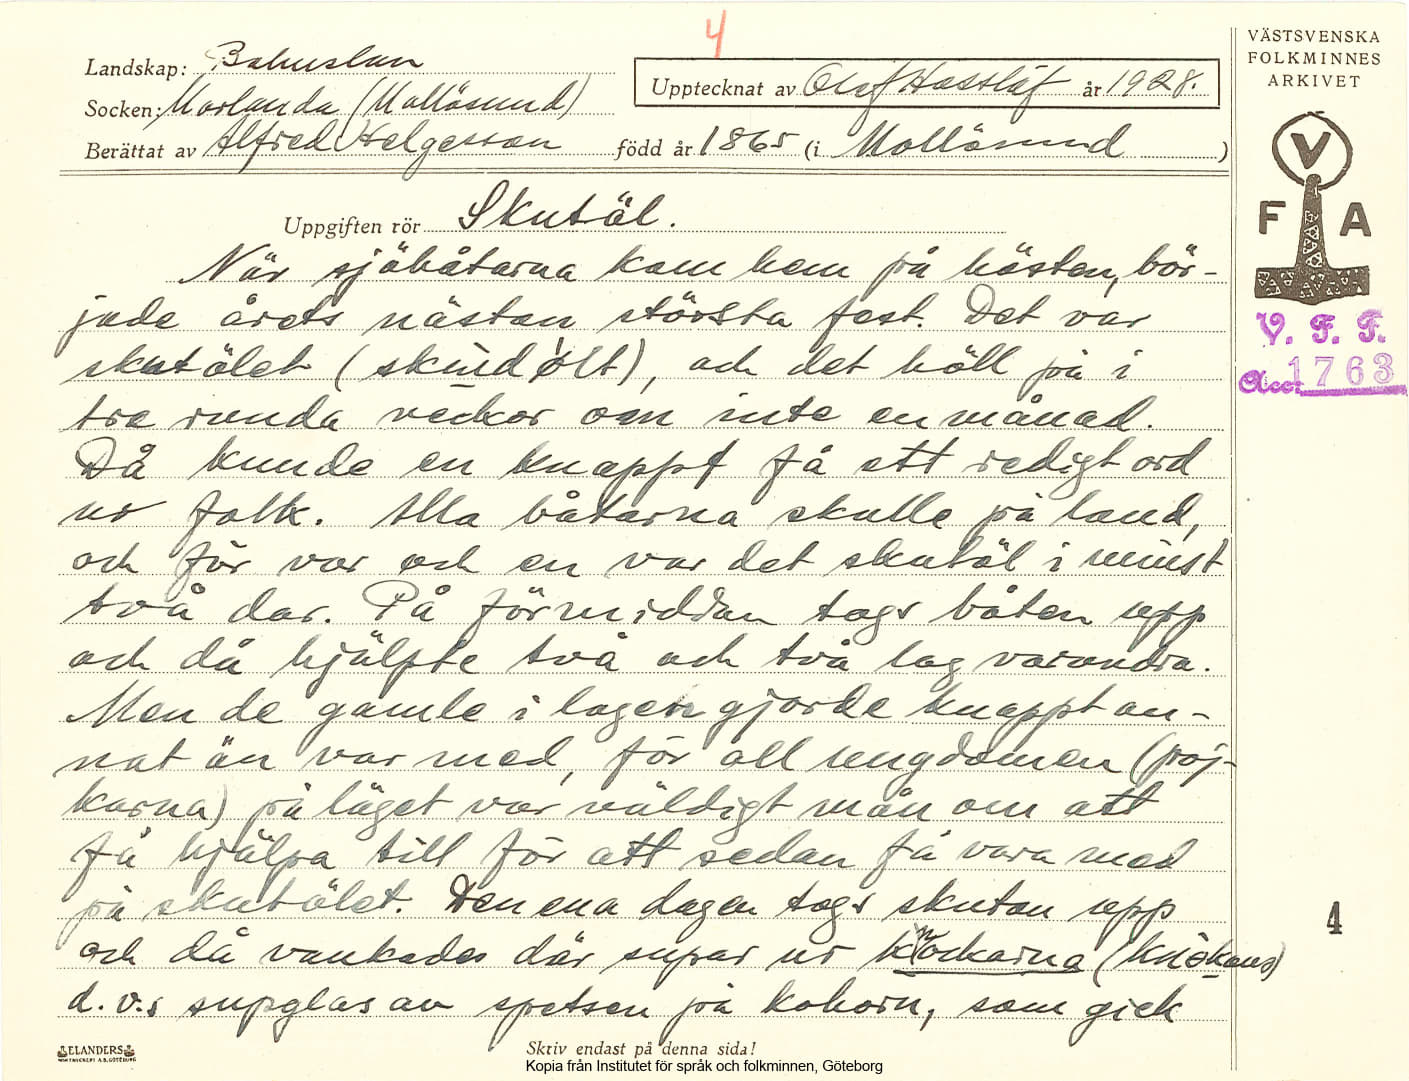 4
Landskap: Bohuslän
Socken: Morlanda (Mollösund)
Berättat av Alfred Helgesson född år 1865 (i Mollösund)
Upptecknat av Olof Hasslöf år 1928.
VÄSTSVENSKA
FOLKMINNES
ARKIVET
V
F A
V. F. F.
Acc: 1763
Uppgiften rör Skutöl.
När sjöbåtarna kom hem på hösten, bör-
jade årets nästan största fest. Det var
skutölet ( ), och det höll på i
tre runda veckor om inte en månad.
Då kunde en knappt få ett redigt ord
ur folk. Alla båtarna skulle på land,
och för var och en var det skutöl i minst
två dar. På förmiddan togs båten upp
och då hjälpte två och två lag varandra.
Men de gamle i lagen gjorde knappt an-
nat än var med, för all ungdomen (pöj-
karna) på läget var väldigt mån om att
få hjälpa till för att sedan få vara med
på skutölet. Den ena dagen togs skutan upp
och då vankades där supar ur knockarna
d.v.s supglas av spetsen på kohorn, som gick
4
ELANDERS
Skriv endast på denna sida!
Kopia från Institutet för språk och folkminnen, Göteborg